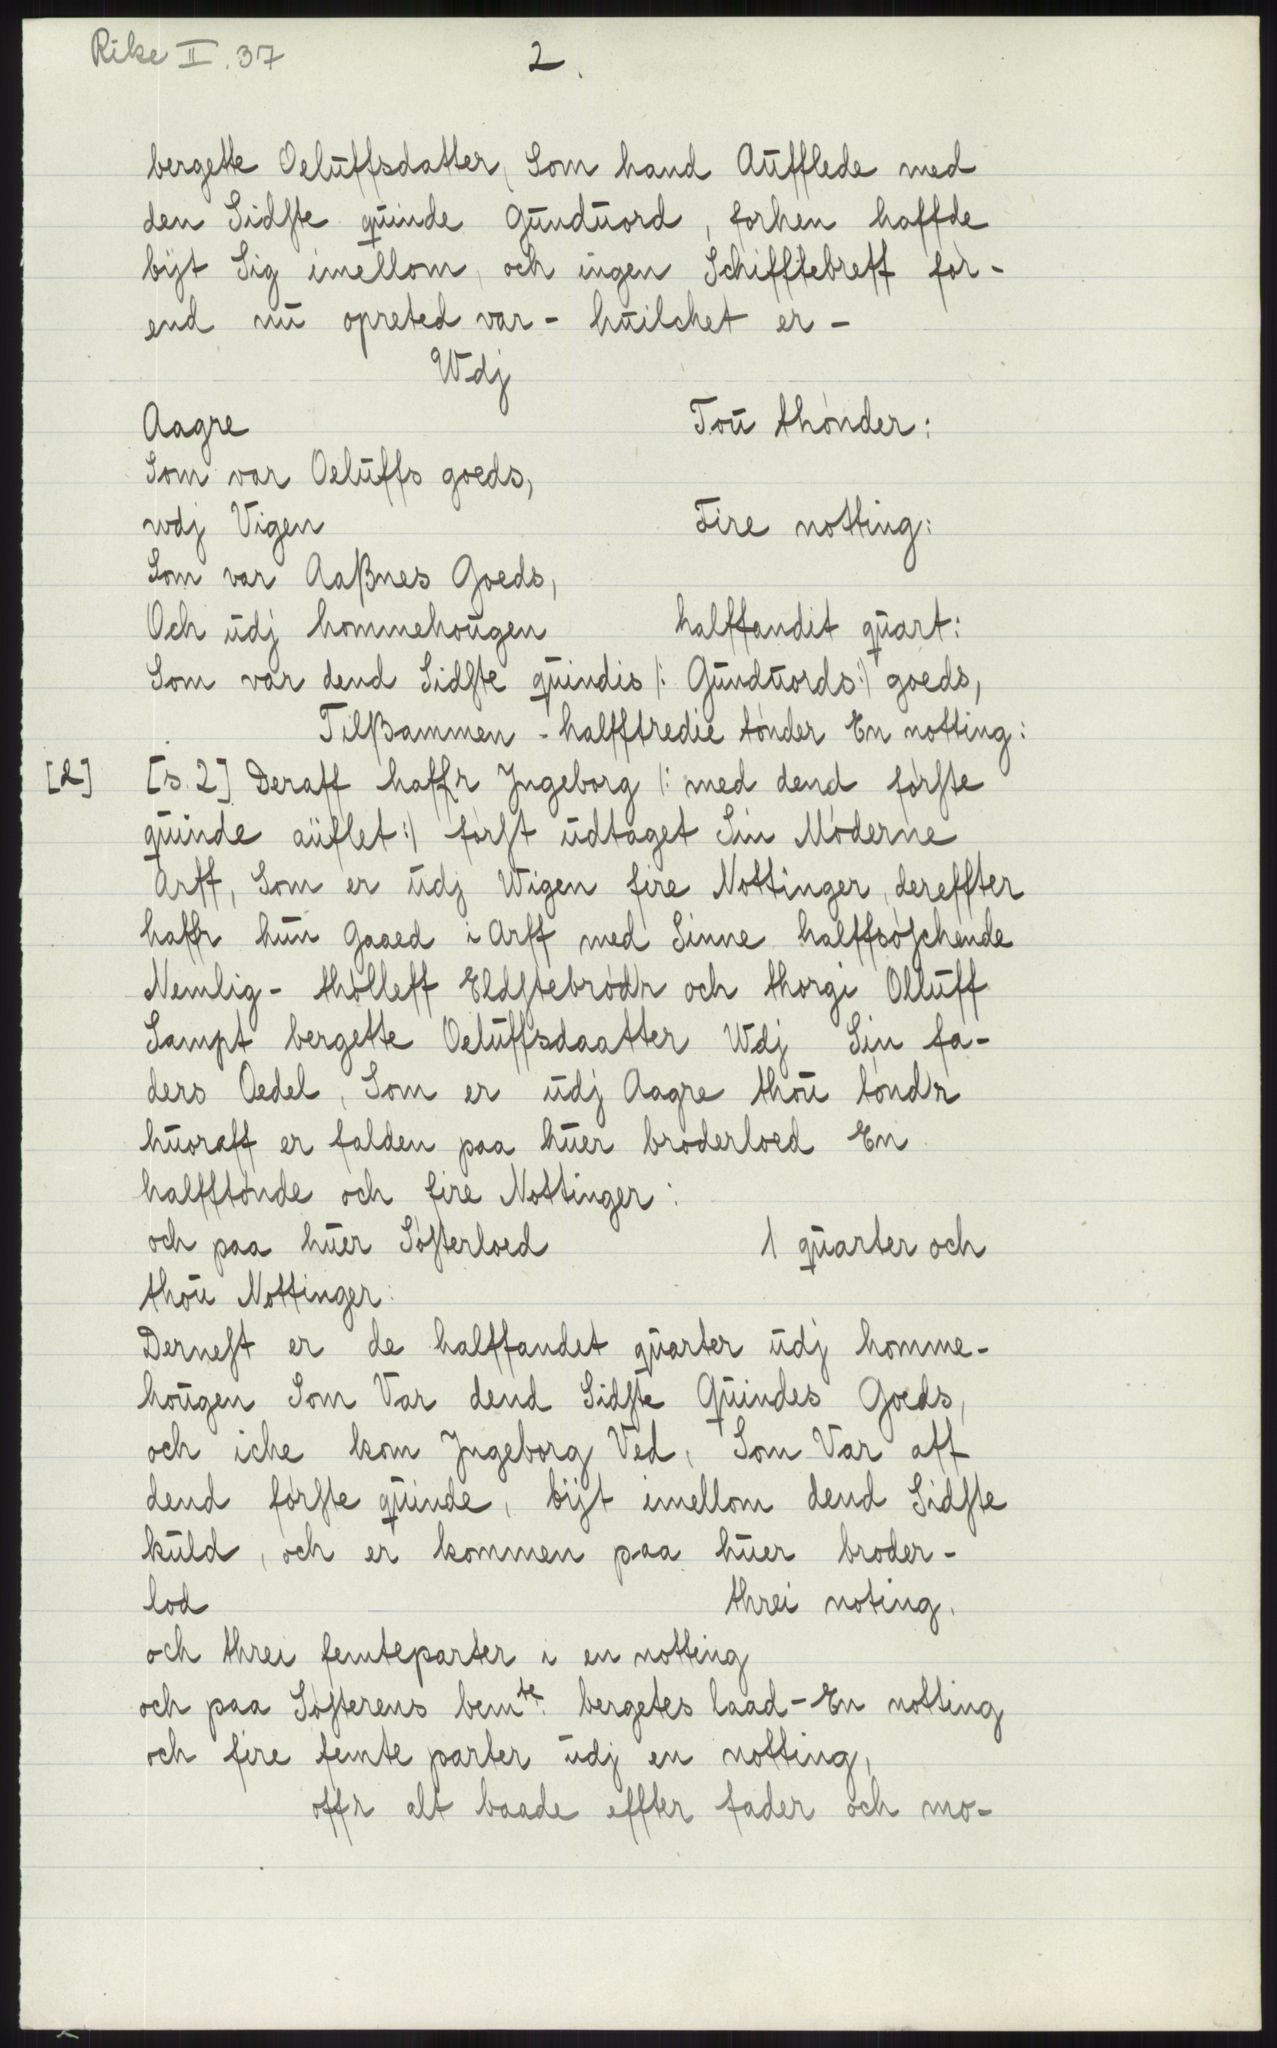 Rike II. 37
2.
bergette Oelūffsdatter, Som hand Aūfflede med
den Sidste qūinde Gūndūord, forhen haffde
bijt Sig imellom, och ingen Schifftebreff før-
end nū opreted var - hūilchet er -
Wdj
Aagre Toū thønder:
Som var Oelūffs goeds,
wdj Vigen Fire notting:
Som var Aaßnes Goeds,
Och ūdj hommehoūgen halffandit qūart:
Som var dend Sidste qūindis /: Gūndūords :/ goeds,
Tilßammen - halfftredie tønder En notting:
[2] [s. 2] Deraff haffr Jngeborg /: med dend første
qūinde aūflet :/ først ūdtaget Sin Møderne
Arff, Som er ūdj Wigen fire Nottinger, dereffter
haffr hūn Gaaed i Arff med Sinne halffsøschende
Nemlig - thølleff Eldstebrødr och thorgi Ollūff
Sampt bergette Oelūffsdaatter Wdj Sin fa-
ders Oedel, Som er ūdj Aagre thoū tøndr
hūoraff er falden paa hūer broderloed En
halfftønde och fire Nottinger:
och paa hūer Søsterloed 1 qūarter och
thoū Nottinger:
Dernest er de halffandet qūarter ūdj homme-
hoūgen Som Var dend Sidste Qūindes Goeds,
och iche kom Jngeborg Ved, Som Var aff
dend første qūinde, bijt imellom dend Sidste
kūld, och er kommen paa hūer broder-
lod threi noting.
och threi femteparter i en notting
och paa Søsterens bemte. bergetes laad - En notting
och fire femte parter ūdj en notting,
offr alt baade effter fader och mo-